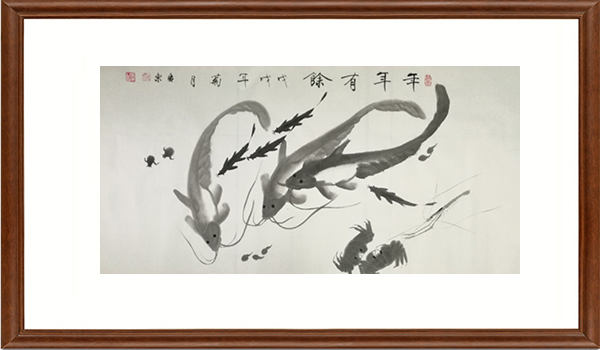 年年有餘 戊戌年菊月